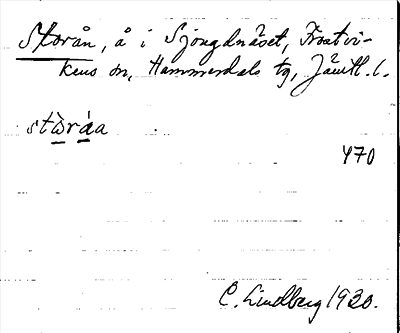 Storån, å i Sjougdnäset, Frostvi-
kens sn, Hammerdals tg, Jämtl. l.
stẁ̱rá̱a
470
C. Lindberg 1930.